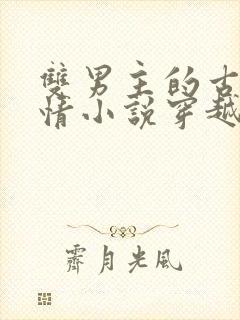 雙男主的古
情小說穿越
霽月光風